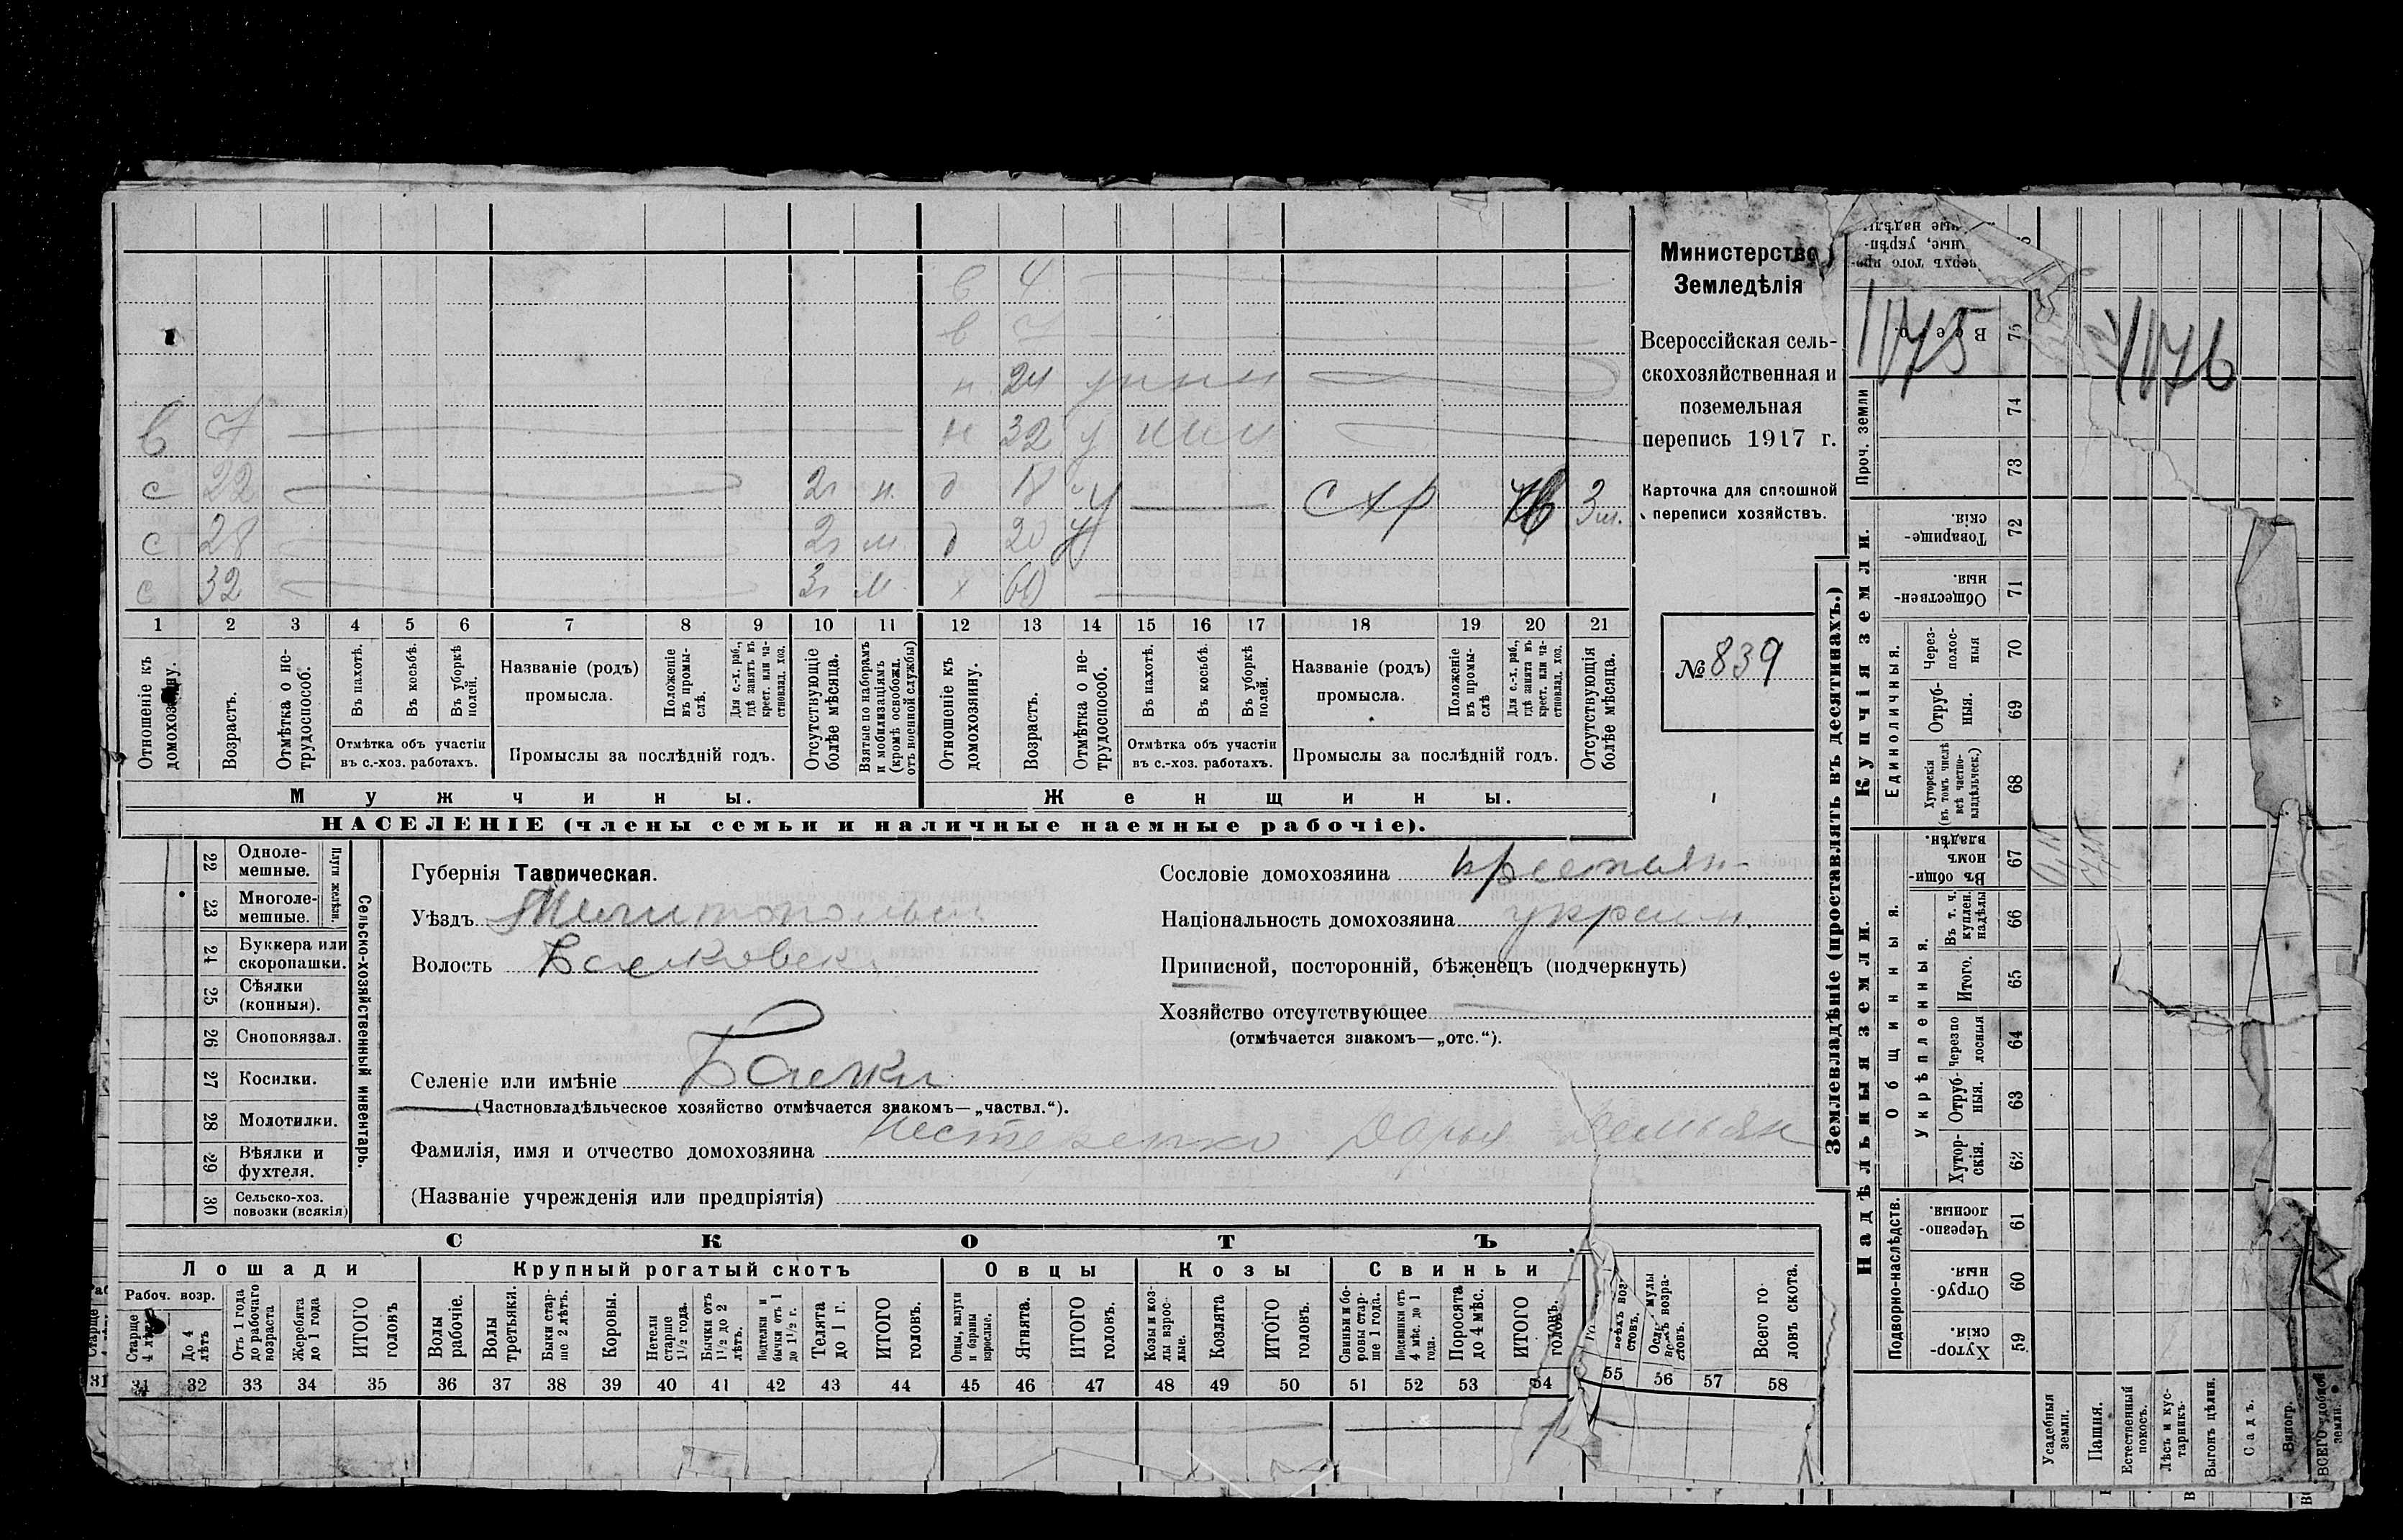 в 4
в 7
н 24
в 7 н 32 у
с 22 2г м. д 18 у схр 3 м.
с 28 2г м. д 20 у
с 32 3г м. х 60
1 2 3 4 5 6 7 8 9 10 11 12 13 14 15 16 17 18 19 20 21
Отношеніе къ домохозяину.
Возрастъ.
Отмѣтка о не-трудоспособ.
Въ пахотѣ.
Въ косьбѣ.
Въ уборкѣ полей.
Отмѣтка объ участіи
въ с.-хоз. работахъ.
Названіе (родъ)
промысла.
Положеніе въ промы-слѣ.
Для с.-х. раб., гдѣ занятъ въ крест. или ча-стновлад. хоз.
Промыслы за послѣдній годъ.
Отсутствующіе болѣе мѣсяца.
Взятые по наборамъ и мобилизаціямъ (кромѣ освобожд. отъ военной службы)
Отношеніе къ домохозяину.
Возрастъ.
Отмѣтка о не-трудоспособ.
Въ пахотѣ.
Въ косьбѣ.
Въ уборкѣ полей.
Отмѣтка объ участіи
въ с.-хоз. работахъ.
Названіе (родъ)
промысла.
Положеніе въ промы-слѣ
Для с.-х. раб., гдѣ занята въ крест. или ча-стновлад. хоз.
Промыслы за послѣдній годъ.
Отсутствующія болѣе мѣсяца.
Мужчины. Женщины.
НАСЕЛЕНІЕ (члены семьи и наличные наемные рабочіе).
Министерство
Земледѣлія
Всероссійская сель-
скохозяйственная и
поземельная
перепись 1917 г.
Карточка для сплошной
переписи хозяйствъ.
№ 839
22 Одноле-мешные.
23 Многоле-мешные.
Плуги желѣзн.
24 Буккера или скоропашки.
25 Сѣялки (конныя).
26 Сноповязал.
27 Косилки.
28 Молотилки.
29 Вѣялки и фухтеля.
30 Сельско-хоз. повозки (всякія)
Сельско-хозяйственный инвентарь.
Губернія Таврическая.
Уѣздъ Мелитопольск
Волость Балковск
Селеніе или имѣніе Балки
(Частновладѣльческое хозяйство отмѣчается знакомъ—„частвл.“).
Фамилія, имя и отчество домохозяина Нестеренко Дарья Демьян
(Названіе учрежденія или предпріятія)
Сословіе домохозяина крестьян
Національность домохозяина украин.
Приписной, посторонній, бѣженецъ (подчеркнуть)
Хозяйство отсутствующее
(отмѣчается знакомъ—„отс.“).
СКОТЪ.
Лошади Крупный рогатый скотъ Овцы Козы Свиньи
Рабоч. возр.
Старше 4 лѣтъ
До 4 лѣтъ
Отъ 1 года до рабочаго возраста
Жеребята до 1 года
ИТОГО головъ
Волы рабочіе.
Волы третьяки.
Быки стар-ше 2 лѣтъ.
Коровы.
Нетели старше 1½ года.
Бычки отъ 1½ до 2 лѣтъ.
Подтелки и бычки отъ 1 до 1½ г.
Телята до 1 г.
ИТОГО головъ.
Овцы, валухи и бараны взрослые.
Ягнята.
ИТОГО головъ.
Козы и коз-лы взрос-лые.
Козлята
ИТОГО головъ.
Свиньи и бо-ровы стар-ше 1 года.
Подсвинки отъ 4 мѣс. до 1 года.
Поросята до 4 мѣс.
ИТОГО головъ.
Всего го-ловъ скота.
31 32 33 34 35 36 37 38 39 40 41 42 43 44 45 46 47 48 49 50 51 52 53 54 55 56 57 58
Землевладѣніе (проставлять въ десятинахъ.)
1175
1176
75 Всего.
Купчія земли.
Проч. земли
74
73
72 Товарище-скія.
71 Обществен-ныя.
Единоличныя.
70 Через-полос-ныя
69 Отруб-ныя.
68 Хуторскія (въ томъ числѣ всѣ частно-владѣльческ.)
Надѣльныя земли.
Общинныя.
67 Въ общи-номъ владѣн.
Укрѣпленныя.
66 Въ т. ч. куплен. надѣлы
65 Итого.
64 Черезпо лосныя
63 Отруб-ныя.
62 Хутор-скія.
Подворно-наслѣдств.
61 Черезпо-лосныя.
60 Отруб-ныя.
59 Хутор-скія.
Усадебныя земли.
Пашня.
Естественный покосъ.
Лѣсъ и кус-тарникъ.
Выгонъ цѣлин.
Садъ.
Виногр.
ВСЕГО удобной земли.